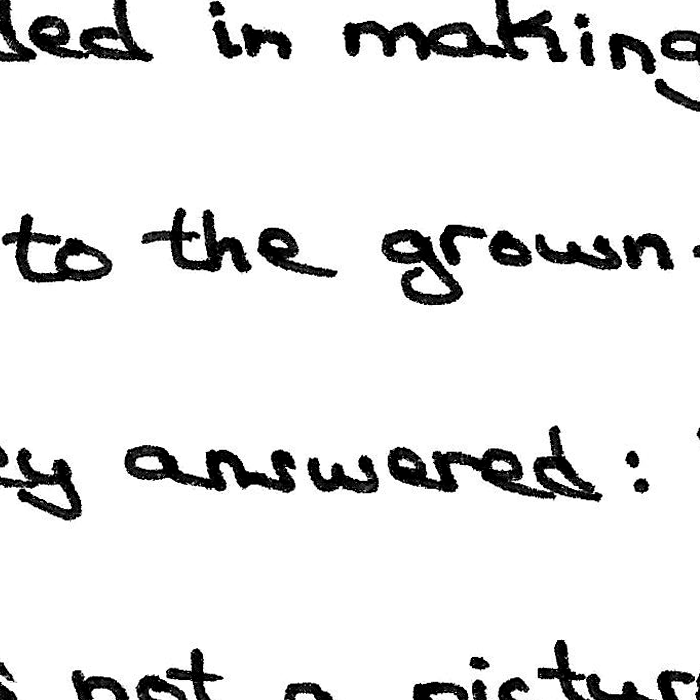 ded in making
to the grown-
ey answered :
not a pictur